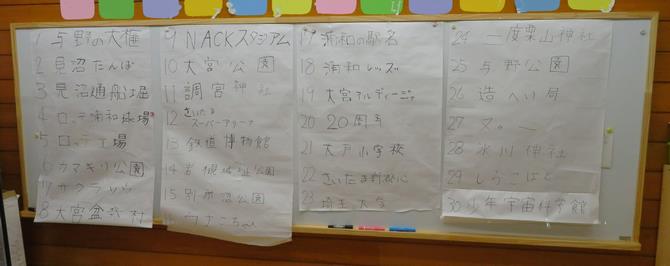 1 与野の大欅
2 見沼たんぼ
3 見沼通船堀
4 ロッテ浦和球場
5 ロッテ工場
6 カマキリ公園
7 サクラソウ
8 大宮盆栽村
9 NACKスタジアム
10 大宮公園
11 調宮神社
12 さいたま
スーパーアリーナ
13 鉄道博物館
14 岩槻城址公園
15 別所沼公園
17 浦和の駅名
18 浦和レッズ
19 大宮アルディージャ
20 20周年
21 大戸小学校
22 さいたま新都心
23 埼玉大学
24 二度栗山神社
25 与野公園
26 造へい局
27
28 氷川神社
29 しらこばと
30 少年宇宙科学館